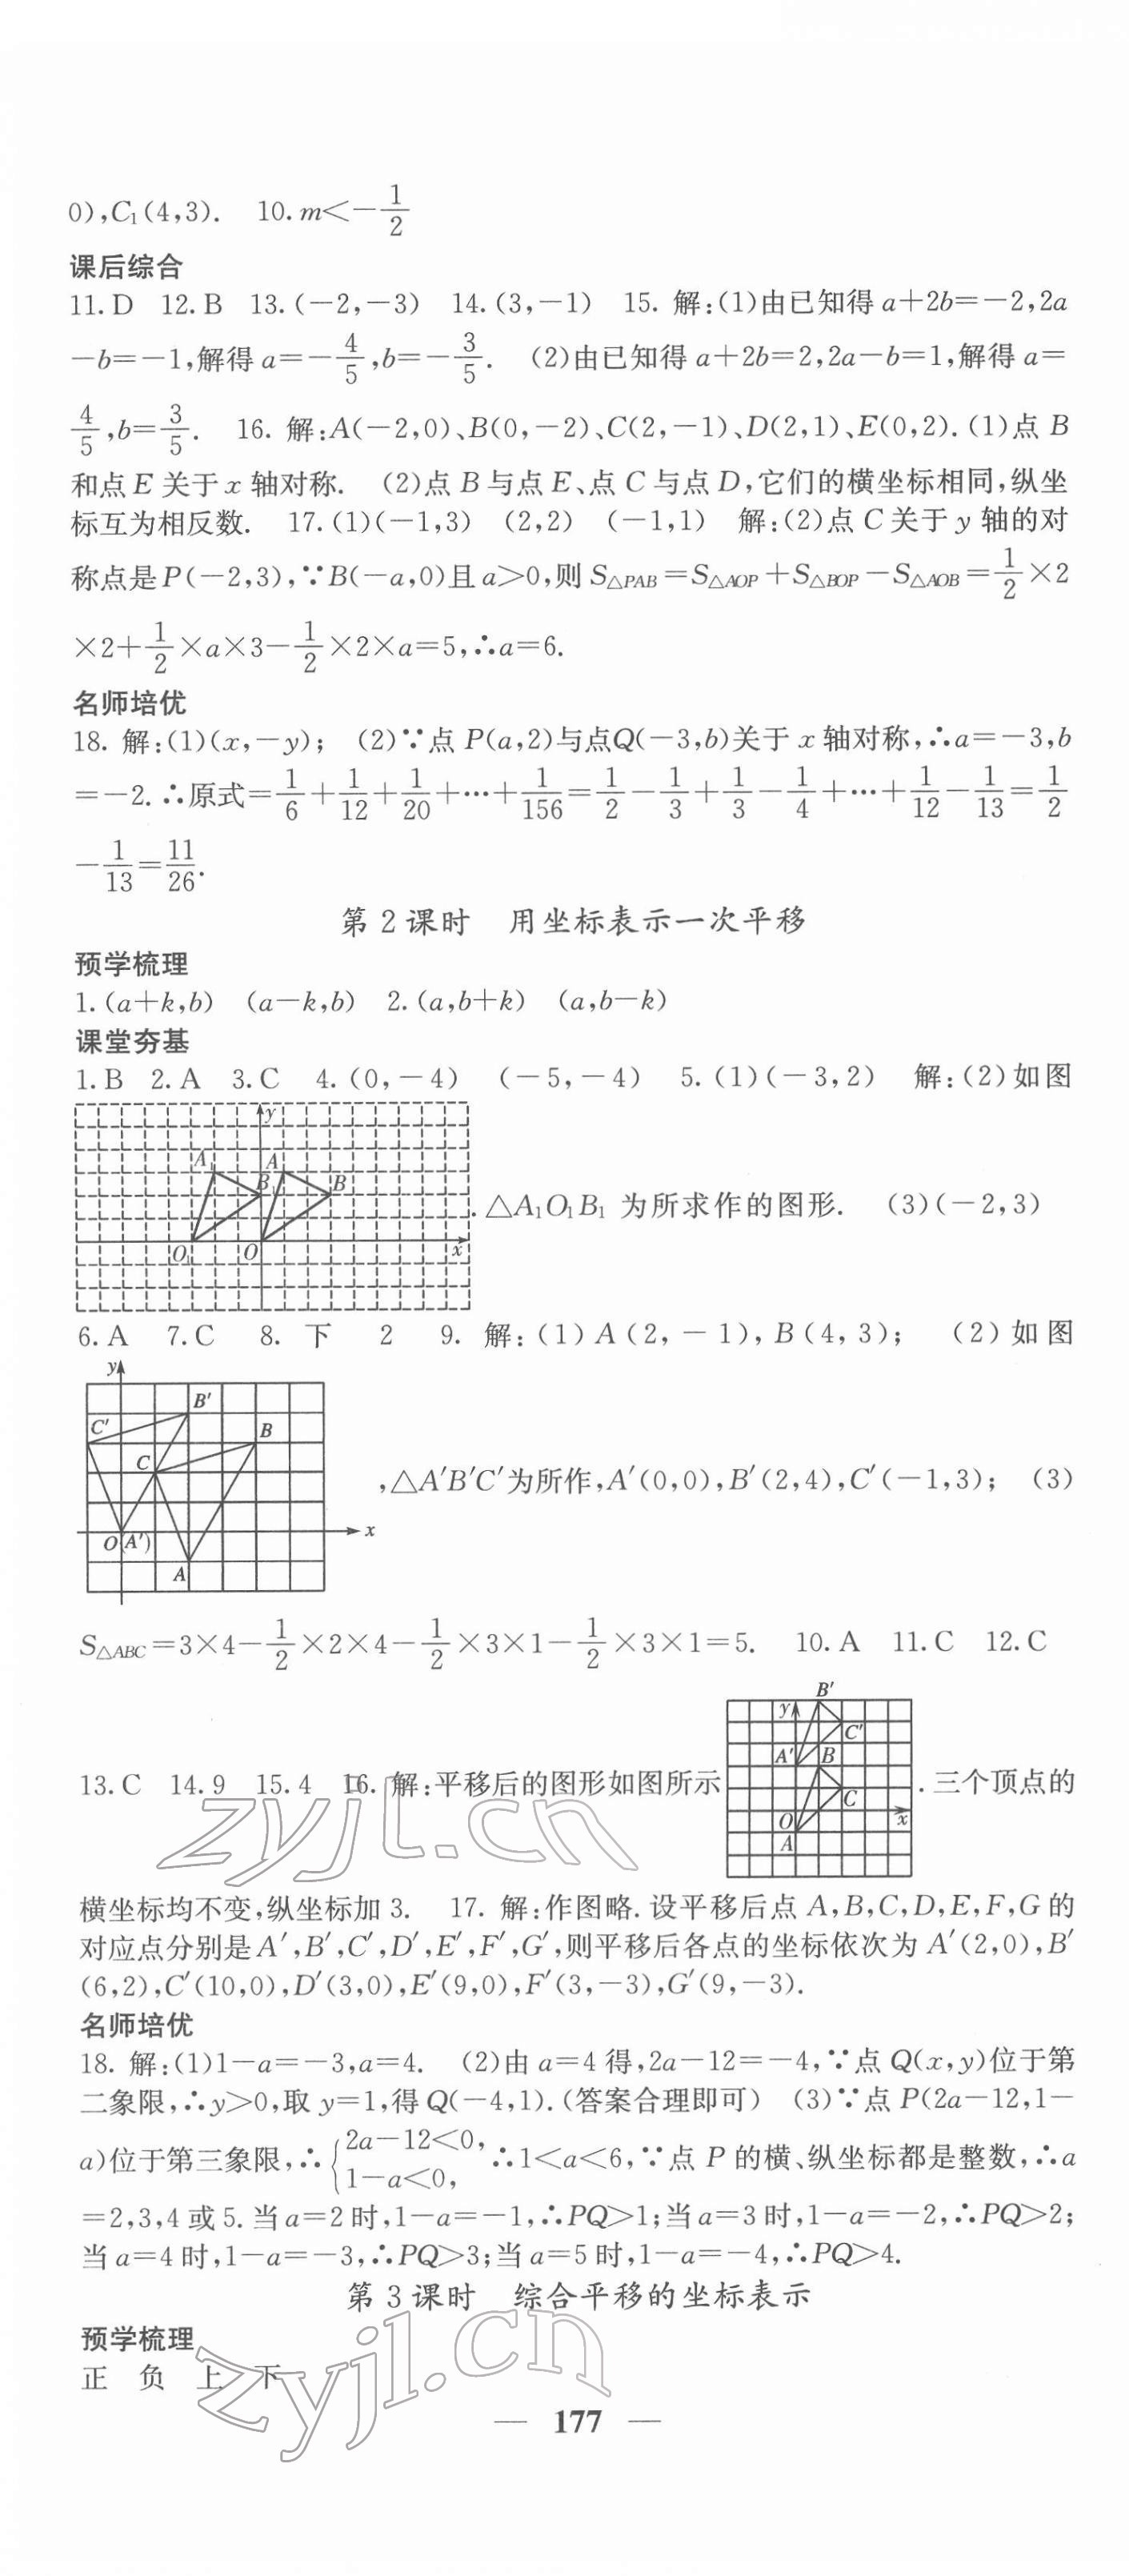 0),C₁(4,3).  10. m<-1/2
课后综合
11. D  12. B  13. (-2,-3)  14. (3,-1)  15. 解:(1)由已知得 a+2b=-2,2a
-b=-1,解得 a=-4/5,b=-3/5.  (2)由已知得 a+2b=2,2a-b=1,解得 a=
4/5,b=3/5.  16. 解:A(-2,0)、B(0,-2)、C(2,-1)、D(2,1)、E(0,2). (1)点 B
和点 E 关于 x 轴对称.  (2)点 B 与点 E、点 C 与点 D,它们的横坐标相同,纵坐
标互为相反数.  17. (1)(-1,3)  (2,2)  (-1,1)  解:(2)点 C 关于 y 轴的对
称点是 P(-2,3),∵B(-a,0)且 a>0,则 S△PAB=S△AOP+S△BOP-S△AOB=1/2×2
×2+1/2×a×3-1/2×2×a=5,∴a=6.
名师培优
18. 解:(1)(x,-y);  (2)∵点 P(a,2)与点Q(-3,b)关于 x 轴对称,∴a=-3,b
=-2. ∴原式=1/6+1/12+1/20+…+1/156=1/2-1/3+1/3-1/4+…+1/12-1/13=1/2
-1/13=11/26.
第 2 课时  用坐标表示一次平移
预学梳理
1. (a+k,b)  (a-k,b)  2. (a,b+k)  (a,b-k)
课堂夯基
1. B  2. A  3. C  4. (0,-4)  (-5,-4)  5. (1)(-3,2)  解:(2)如图
y
A₁ A
B₁ B
.△A₁O₁B₁ 为所求作的图形.  (3)(-2,3)
O₁ O x
6. A  7. C  8. 下  2  9. 解:(1)A(2,-1),B(4,3);  (2)如图
y
B′
C′ B
C
,△A′B′C′为所作,A′(0,0),B′(2,4),C′(-1,3);  (3)
x
O(A′)
A
S△ABC=3×4-1/2×2×4-1/2×3×1-1/2×3×1=5.  10. A  11. C  12. C
B′
y
C′
A′ B
13. C  14. 9  15. 4  16. 解:平移后的图形如图所示.三个顶点的
C
O x
A
横坐标均不变,纵坐标加 3.  17. 解:作图略. 设平移后点 A,B,C,D,E,F,G 的
对应点分别是 A′,B′,C′,D′,E′,F′,G′,则平移后各点的坐标依次为 A′(2,0),B′
(6,2),C′(10,0),D′(3,0),E′(9,0),F′(3,-3),G′(9,-3).
名师培优
18. 解:(1)1-a=-3,a=4.  (2)由 a=4 得,2a-12=-4,∵点 Q(x,y)位于第
二象限,∴y>0,取 y=1,得 Q(-4,1). (答案合理即可)  (3)∵点 P(2a-12,1-
a)位于第三象限,∴{2a-12<0, 1-a<0, ∴1<a<6,∵点 P 的横、纵坐标都是整数,∴a
=2,3,4 或 5. 当 a=2 时,1-a=-1,∴PQ>1;当 a=3 时,1-a=-2,∴PQ>2;
当 a=4 时,1-a=-3,∴PQ>3;当 a=5 时,1-a=-4,∴PQ>4.
第 3 课时  综合平移的坐标表示
预学梳理
正  负  上  下
— 177 —
zyjl.cn
zyjl.cn